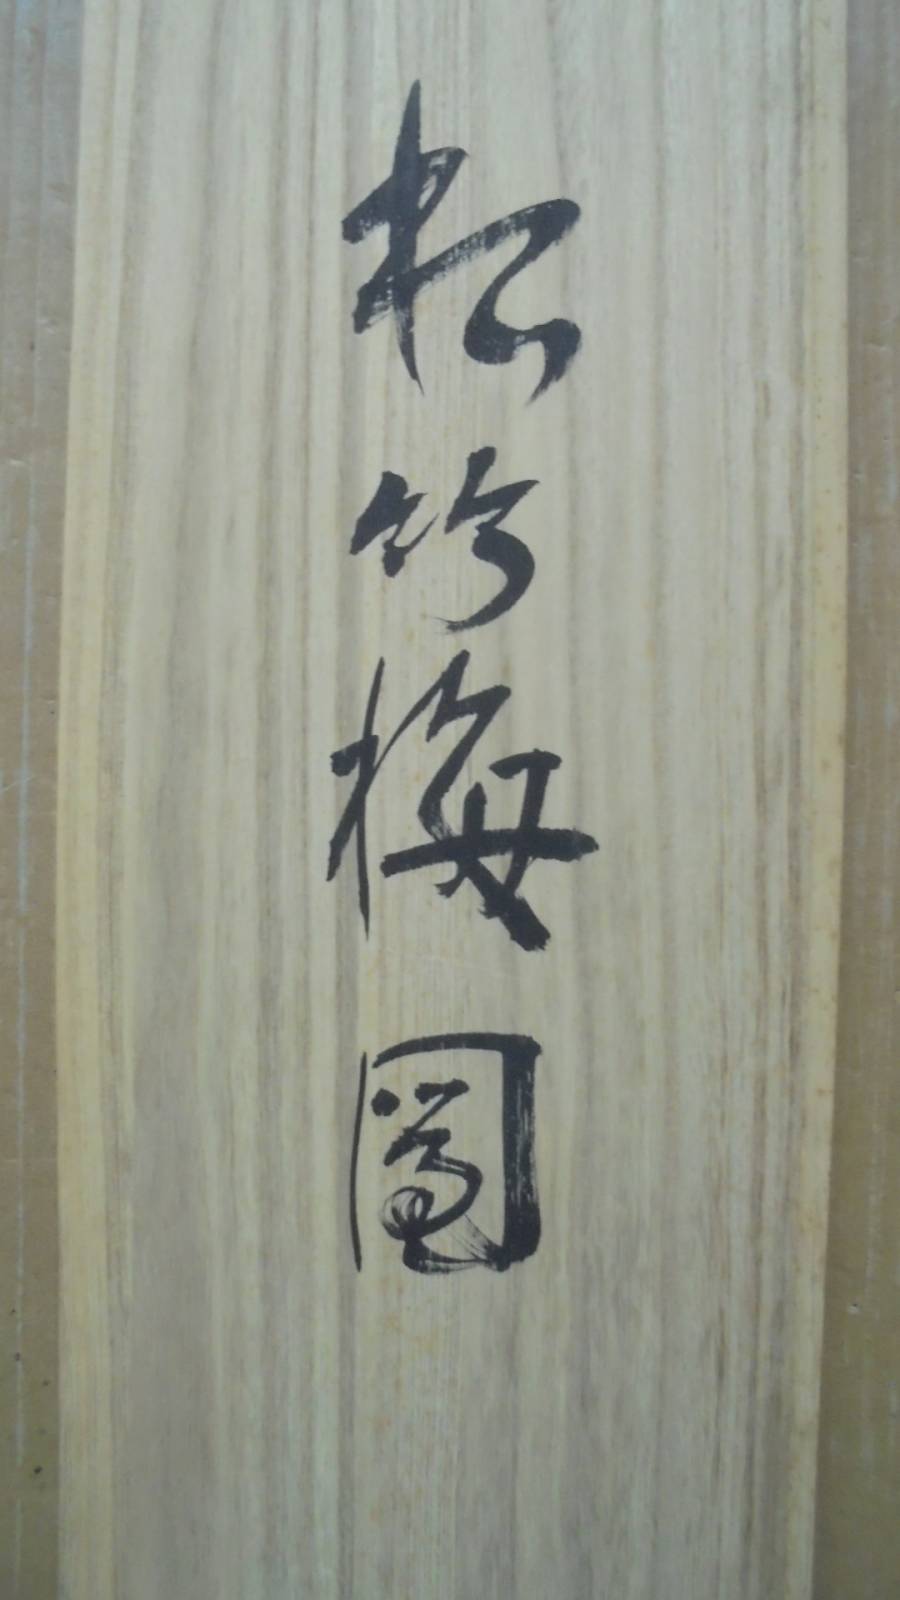 松竹梅圖